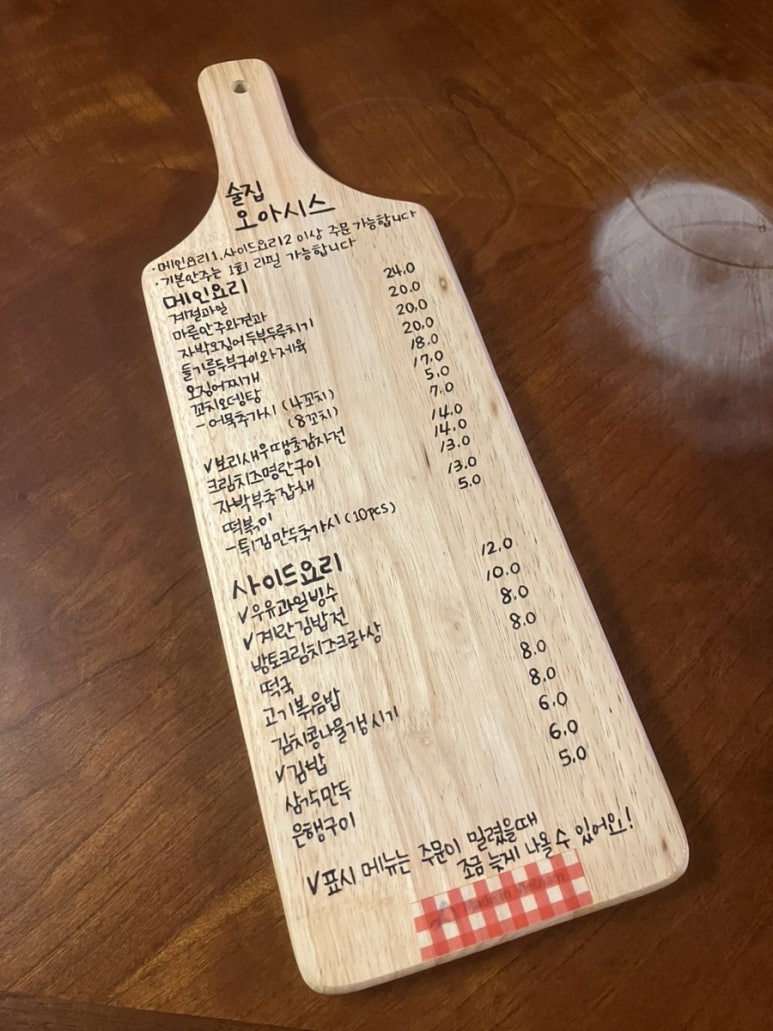 술집
오아시스
·메인요리1, 사이드요리2 이상 주문 가능합니다
·기본안주는 1회 리필 가능합니다
메인요리
계절과일 24.0
마른안주와견과 20.0
자박오징어두부두루치기 20.0
들기름두부구이와제육 20.0
오징어찌개 18.0
꼬치오뎅탕 17.0
-어묵추가시 (4꼬치) 5.0
(8꼬치) 7.0
✓보리새우땡초감자전 14.0
크림치즈명란구이 14.0
자박부추잡채 13.0
떡볶이 13.0
-튀김만두추가시 (10pcs) 5.0
사이드요리
✓우유과일빙수 12.0
✓계란김밥전 10.0
방토크림치즈크롸상 8.0
떡국 8.0
고기볶음밥 8.0
김치콩나물갱시기 8.0
✓김밥 6.0
삼각만두 6.0
은행구이 5.0
✓표시 메뉴는 주문이 밀렸을때
조금 늦게 나올 수 있어요!